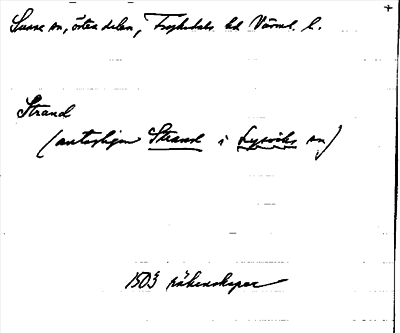 Sunne sn, östra delen, Fryksdals hd Värml. l.
Strand
(antagligen Strand i Lysviks sn)
1503 räkenskaper